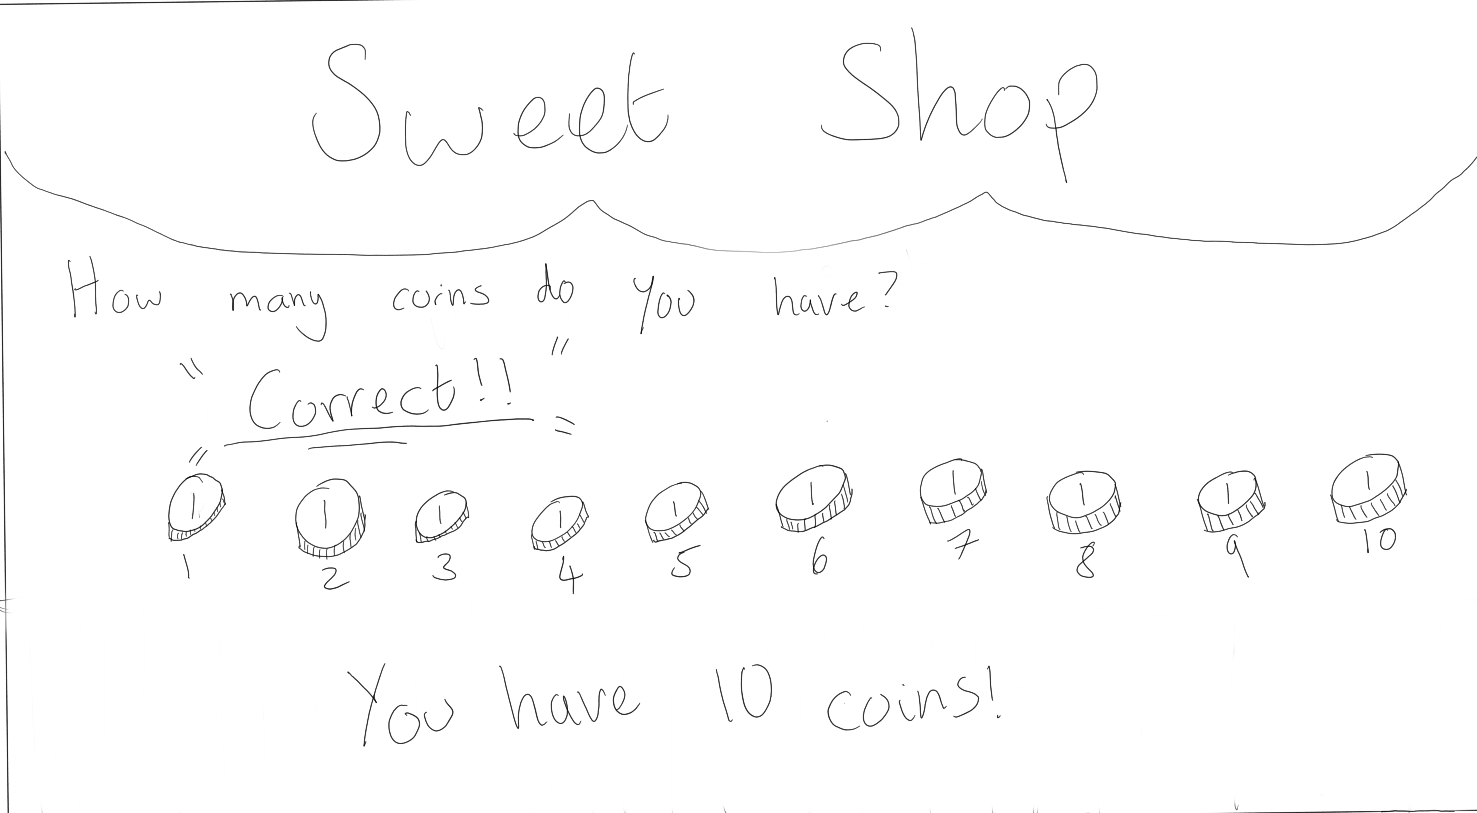 Sweet Shop
How many coins do you have?
"Correct!!"
1 1 1 1 1 1 1 1 1 1
1 2 3 4 5 6 7 8 9 10
You have 10 coins!